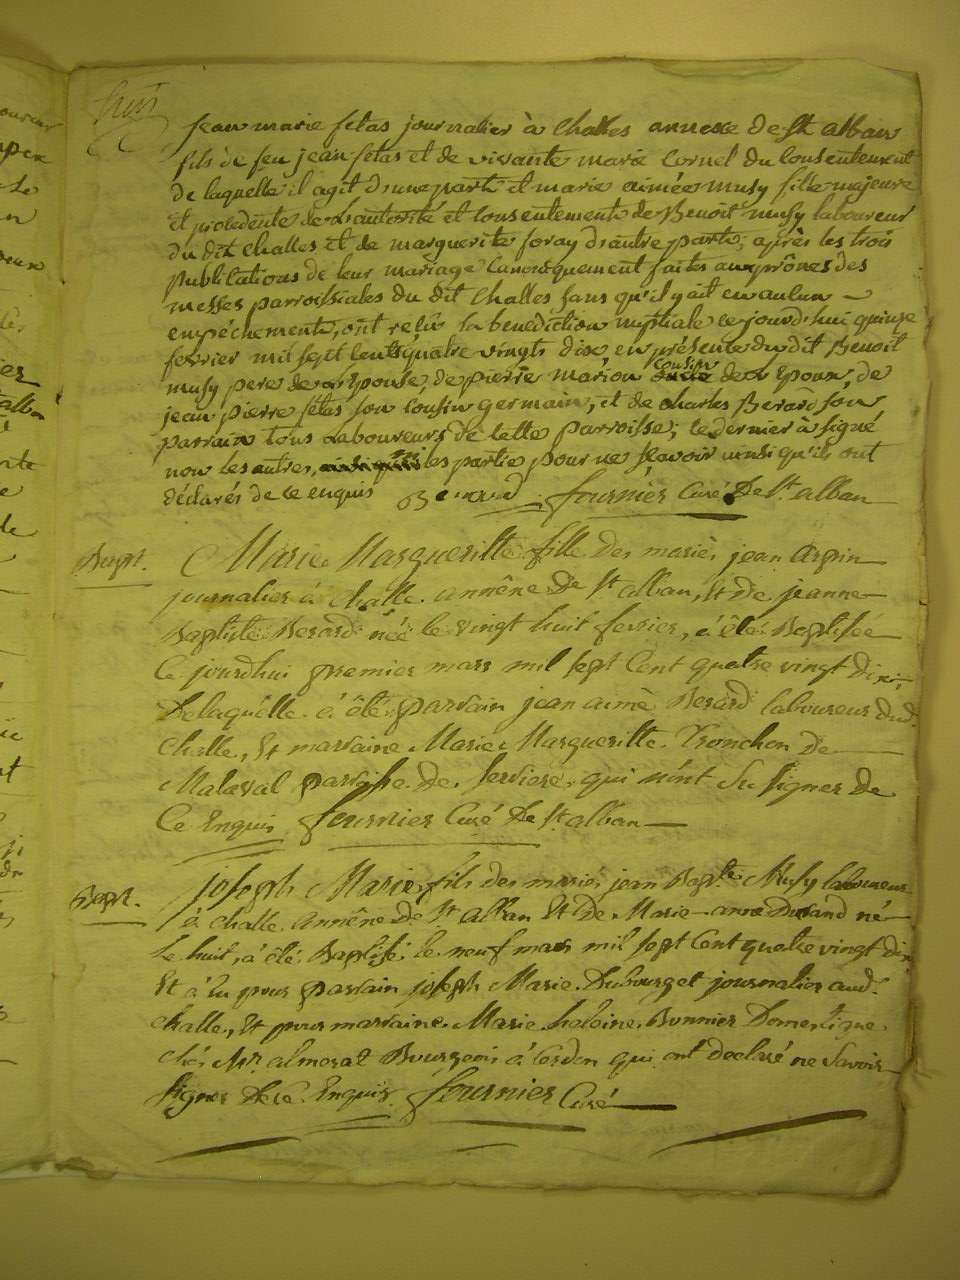 huit
jean marie fetas journalier à Challes annexe de St alban
fils de feu jean fetas et de vivante marie Cornel du Consentement
de laquelle il agit d'une part et marie aimée musy fille majeure
et procedente de L'autorité et Consentement de Benoit musy laboureur
du dit Challes et de marguerite foray d'autre part; après les trois
publications de leur mariage Canoniquement faites aux prônes des
messes parroissiales du dit Challes sans qu'il y ait eu aucun
empéchement, ont reçu la benediction nuptiale ce jourd'hui quinze
fevrier mil sept cents quatre vingts dix, en présence du dit Benoit
musy pere de L'Epouse, de pierre marion cousin de L'Epoux, de
jean pierre fétas son cousin germain, et de charles Berard son
parrain tous Laboureurs de cette parroisse; ce dernier à signé
non les autres, les partie pour ne sçavoir ainsi qu'ils ont
déclarés de ce enquis Berard fournier Curé De St alban
Bapt.
Marie Margueritte fille des mariés jean Arpin
journalier à Challe annéne De St alban, Et de jeanne
Baptiste Berard née le vingt huit fevrier, à été Baptisée
Ce jourdhui premier mars mil sept Cent quatre vingt dix,
De laquelle à été parrain jean aimé Berard laboureur dud.
Challe, Et marraine Marie Marguerite Tronchon de
Malaval parroisse De Serviere qui n'ont Su signer De
Ce Enquis fournier Curé De St alban
Bapt.
joseph Marie, fils des mariés jean Bapte Musy laboureur
à Challe annéne De St alban Et De Marie anne Durand né
Le huit, à été Baptisé le neuf mars mil sept Cent quatre vingt dix
Et à Eu pour parrain joseph Marie Dubourget journalier aud.
Challe, Et pour marraine Marie heleine Bonnier Domestique
Chés Mr almerat Bourgeois à Cerdon qui ont declaré ne Savoir
Signer De Ce Enquis fournier Curé